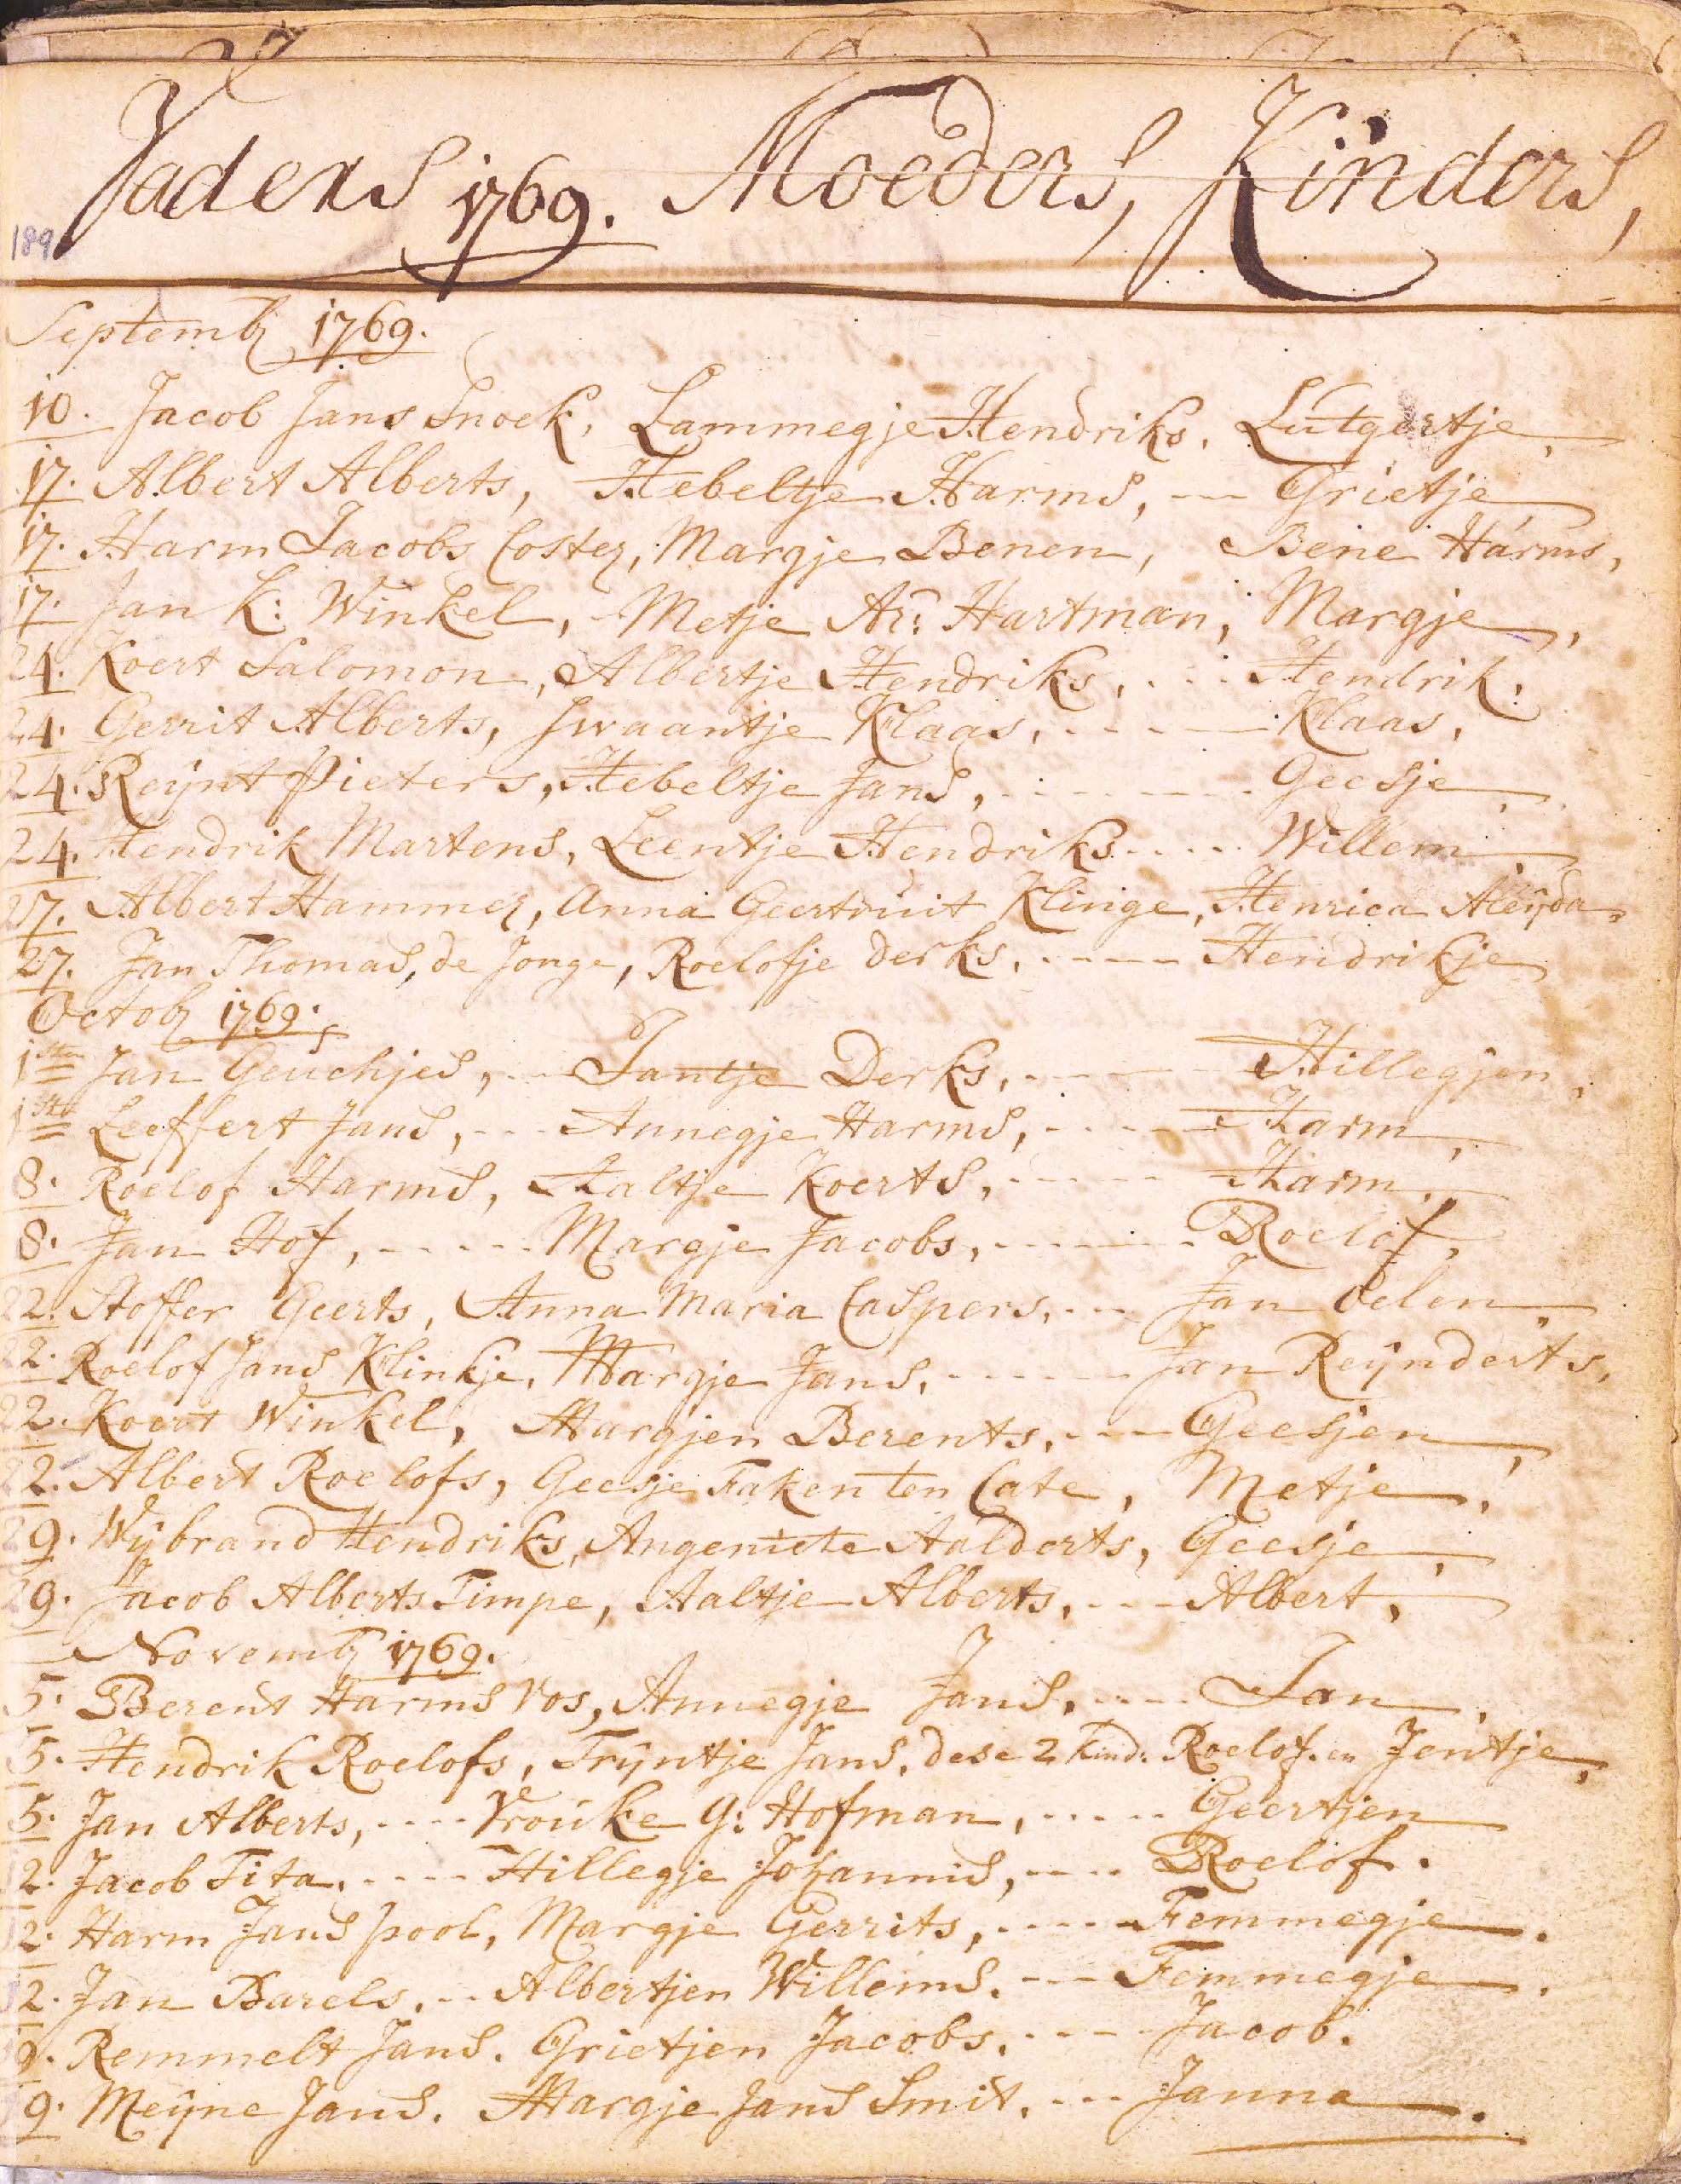 Vaders 1769. Moeders, Kinders,
189
Septemb 1769.
10. Jacob Jans Snoek, Lammegje Hendriks, Lutgertje,
17. Albert Alberts, Hebeltje Harms, -- Grietje,
17. Harm Jacobs Coster, Margje Benen, Bene Harms,
17. Jan K: Winkel, Metje Ar: Hartman, Margje,
24. Koert Salomon, Albertje Hendriks, ... Hendrik,
24. Gerrit Alberts, Swaantje Klaas, ---- Klaas,
24. Reijnt Pieters, Hebeltje Jans, ----- Geesje,
24. Hendrik Martens, Leentje Hendriks ---- Willem,
27. Albert Hammer, Anna Geertruit Klinge, Henrica Aleijda,
27. Jan Thomas, de Jonge, Roelofje Derks, ---- Hendrikje
Octob 1769.
1sten Jan Geuchjes, -- Jantje Derks, ---- Hillegjen,
1ste Leeffert Jans, --- Annegje Harms, ---- Harm,
8. Roelof Harms, Aaltje Koerts, ---- Harm,
8. Jan Hof, ----- Margje Jacobs, ----- Roelof,
22. Stoffer Geerts, Anna Maria Caspers, --- Jan Oelen
22. Roelof Jans Klinkje, Margje Jans, ----- Jan Reijnderts,
22. Koert Winkel, Margjen Berents, --- Geesjen,
22. Albert Roelofs, Geesje Faken ten Cate, Metje,
29. Wijbrand Hendriks, Angeniete Aalderts, Geesje,
29. Jacob Alberts Timpe, Aaltje Alberts, --- Albert,
Novemb 1769.
5. Berent Harms Vos, Annegje Jans, ---- Jan,
5. Hendrik Roelofs, Trijntje Jans, dese 2 kind: Roelof en Jentje,
5. Jan Alberts, ---- Vrouke G: Hofman, ----- Geertjen
2. Jacob Tita, ---- Hillegje Johannis, ---- Roelof.
2. Harm Jans pool, Margje Gerrits, ----- Femmegje.
2. Jan Barels, -- Albertjen Willems. --- Femmegje.
9. Remmelt Jans. Grietjen Jacobs. --- Jacob.
9. Meijne Jans. Margje Jans Smit. --- Janna.